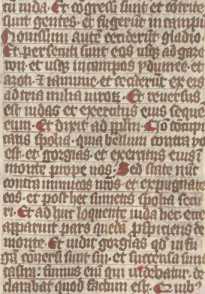 cū iuda. Et ꝯgressi sunt et contrite
sunt gentes. et fugerūt in campū
Nouissimi autē ceciderūt gladio
Et persecuti sunt eos usqꝫ ad gaze
ron. et usqꝫ in campos ydumee. et
azoti. et iamnie. et ceciderūt ex eis
ad tria milia uiroꝝ. Et reuersus
est iudas et exercitus eius sequēs
eum. Et dixit ad pplm. No ꝯcupi
catis spolia. quia bellum contra nos
est. et gorgias. et exercitus eius ī
monte prope nos. Sed state nūc
contra inimicos nrōs. et expugnate
eos. et post hec sumetis spolia secu
ri. Et adhuc loquente iuda hec. ecce
apparuit pars quedā pspiciens de
monte. Et uidit gorgias qd in fu
gā conuersi sunt sui. et succensa sunt
castra. fumus eni qui uidebatur. de
clarabat quod factum est.